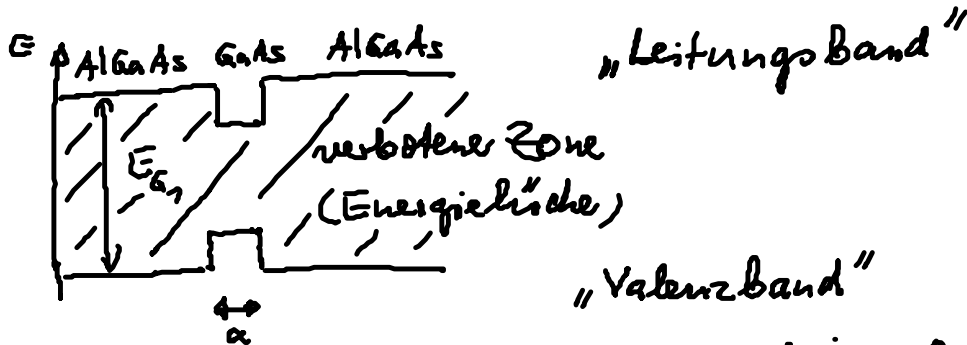 E
AlGaAs GaAs AlGaAs
„Leitungsband"
E_G1
verbotene Zone
(Energielücke)
„Valenzband"